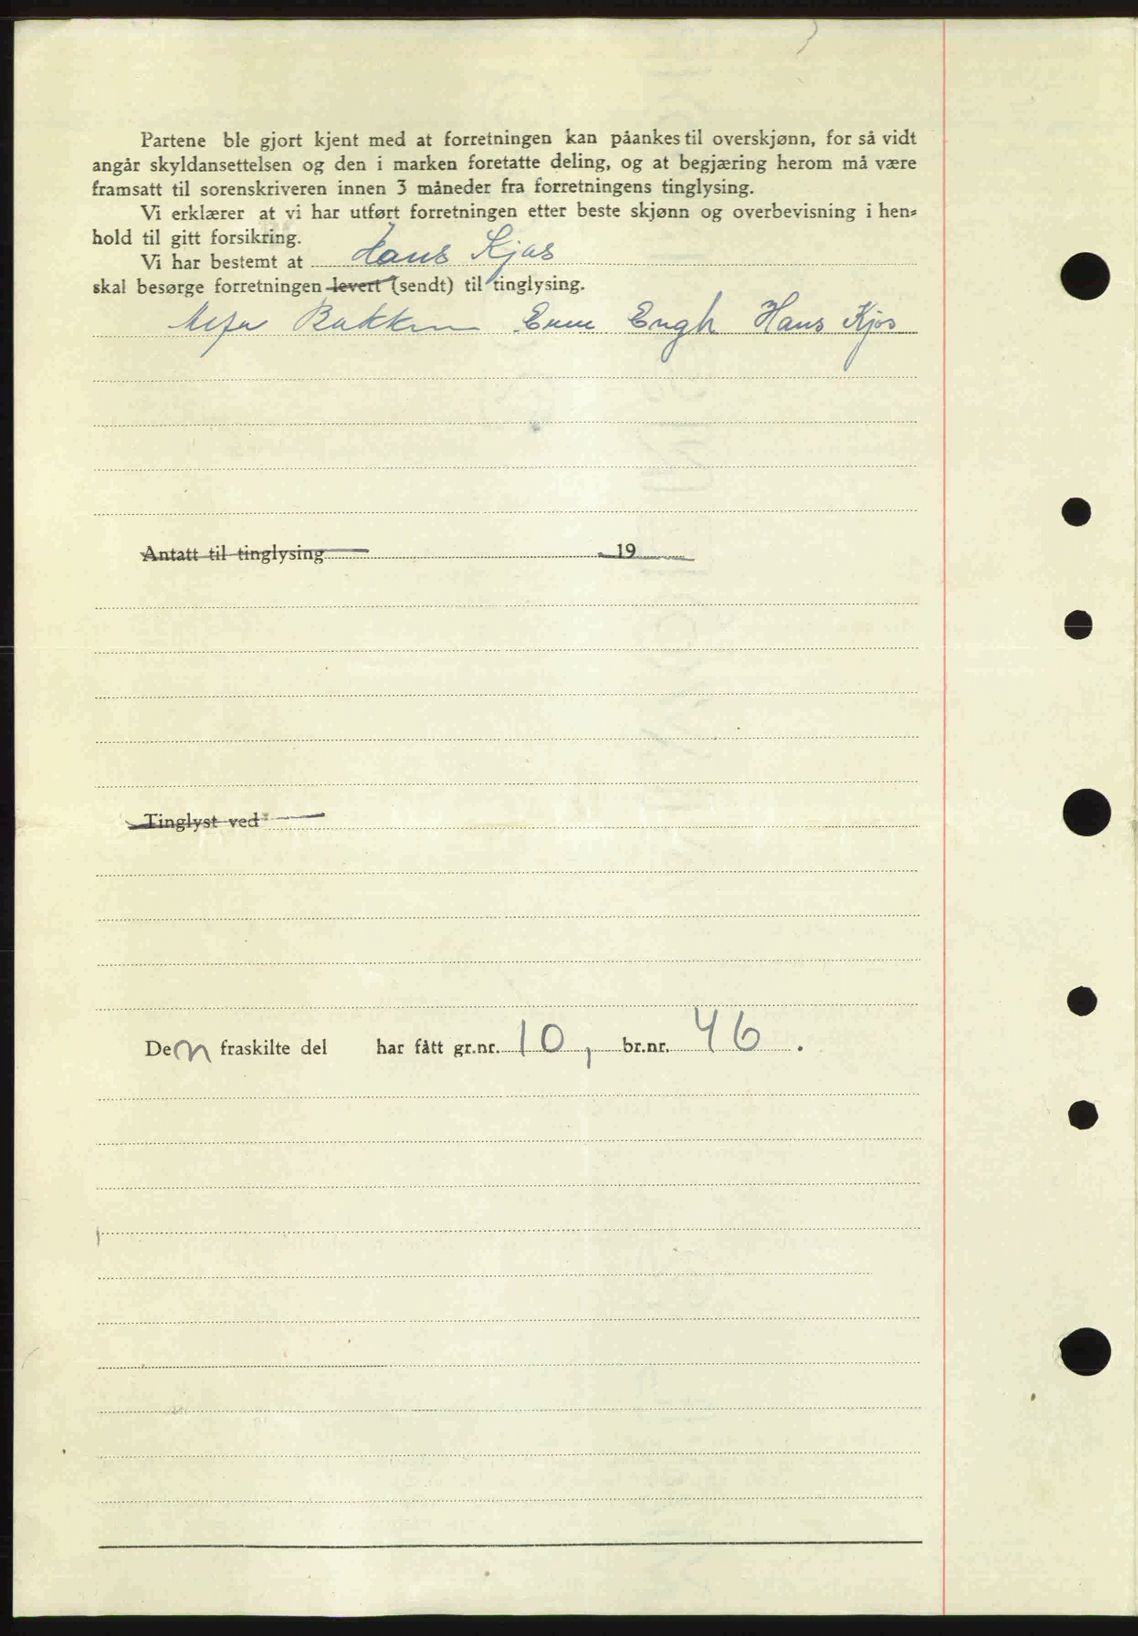 Partene ble gjort kjent med at forretningen kan påankes til overskjønn, for så vidt
angår skyldansettelsen og den i marken foretatte deling, og at begjæring herom må være
framsatt til sorenskriveren innen 3 måneder fra forretningens tinglysing.
Vi erklærer at vi har utført forretningen etter beste skjønn og overbevisning i hen-
hold til gitt forsikring.
Vi har bestemt at Hans Kjos
skal besørge forretningen levert (sendt) til tinglysing.
Bakken Engh Hans Kjos
Antatt til tinglysing 19
Tinglyst ved
Den fraskilte del har fått gr.nr. 10, br.nr. 46.